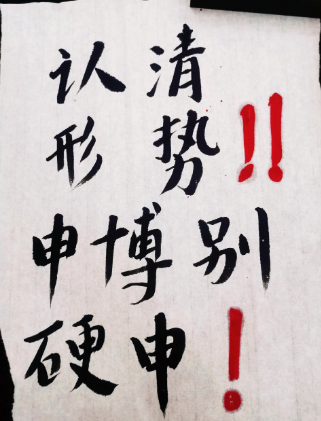 认清
形势!!
申博别
硬申!